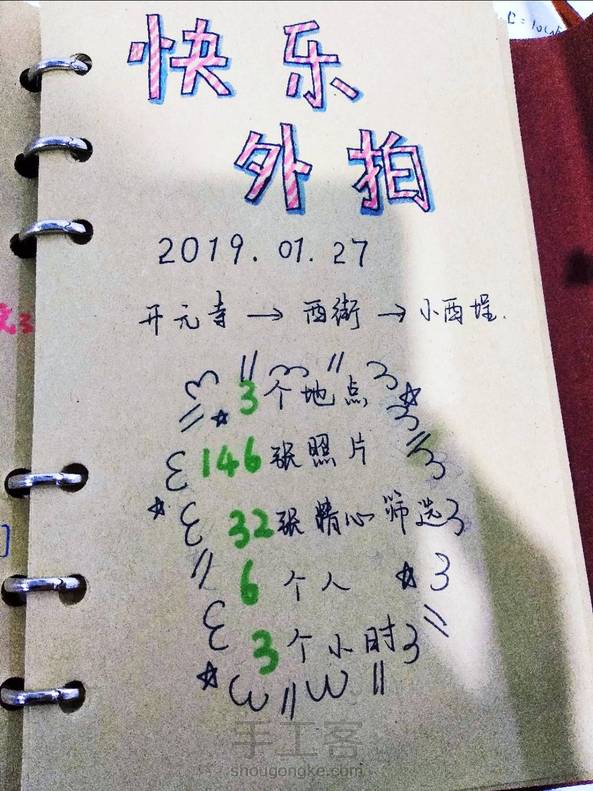 快乐
外拍
2019.01.27
开元寺→西街→小西埕.
3个地点
146张照片
32张精心筛选
6个人
3个小时
手工客
shougongke.com